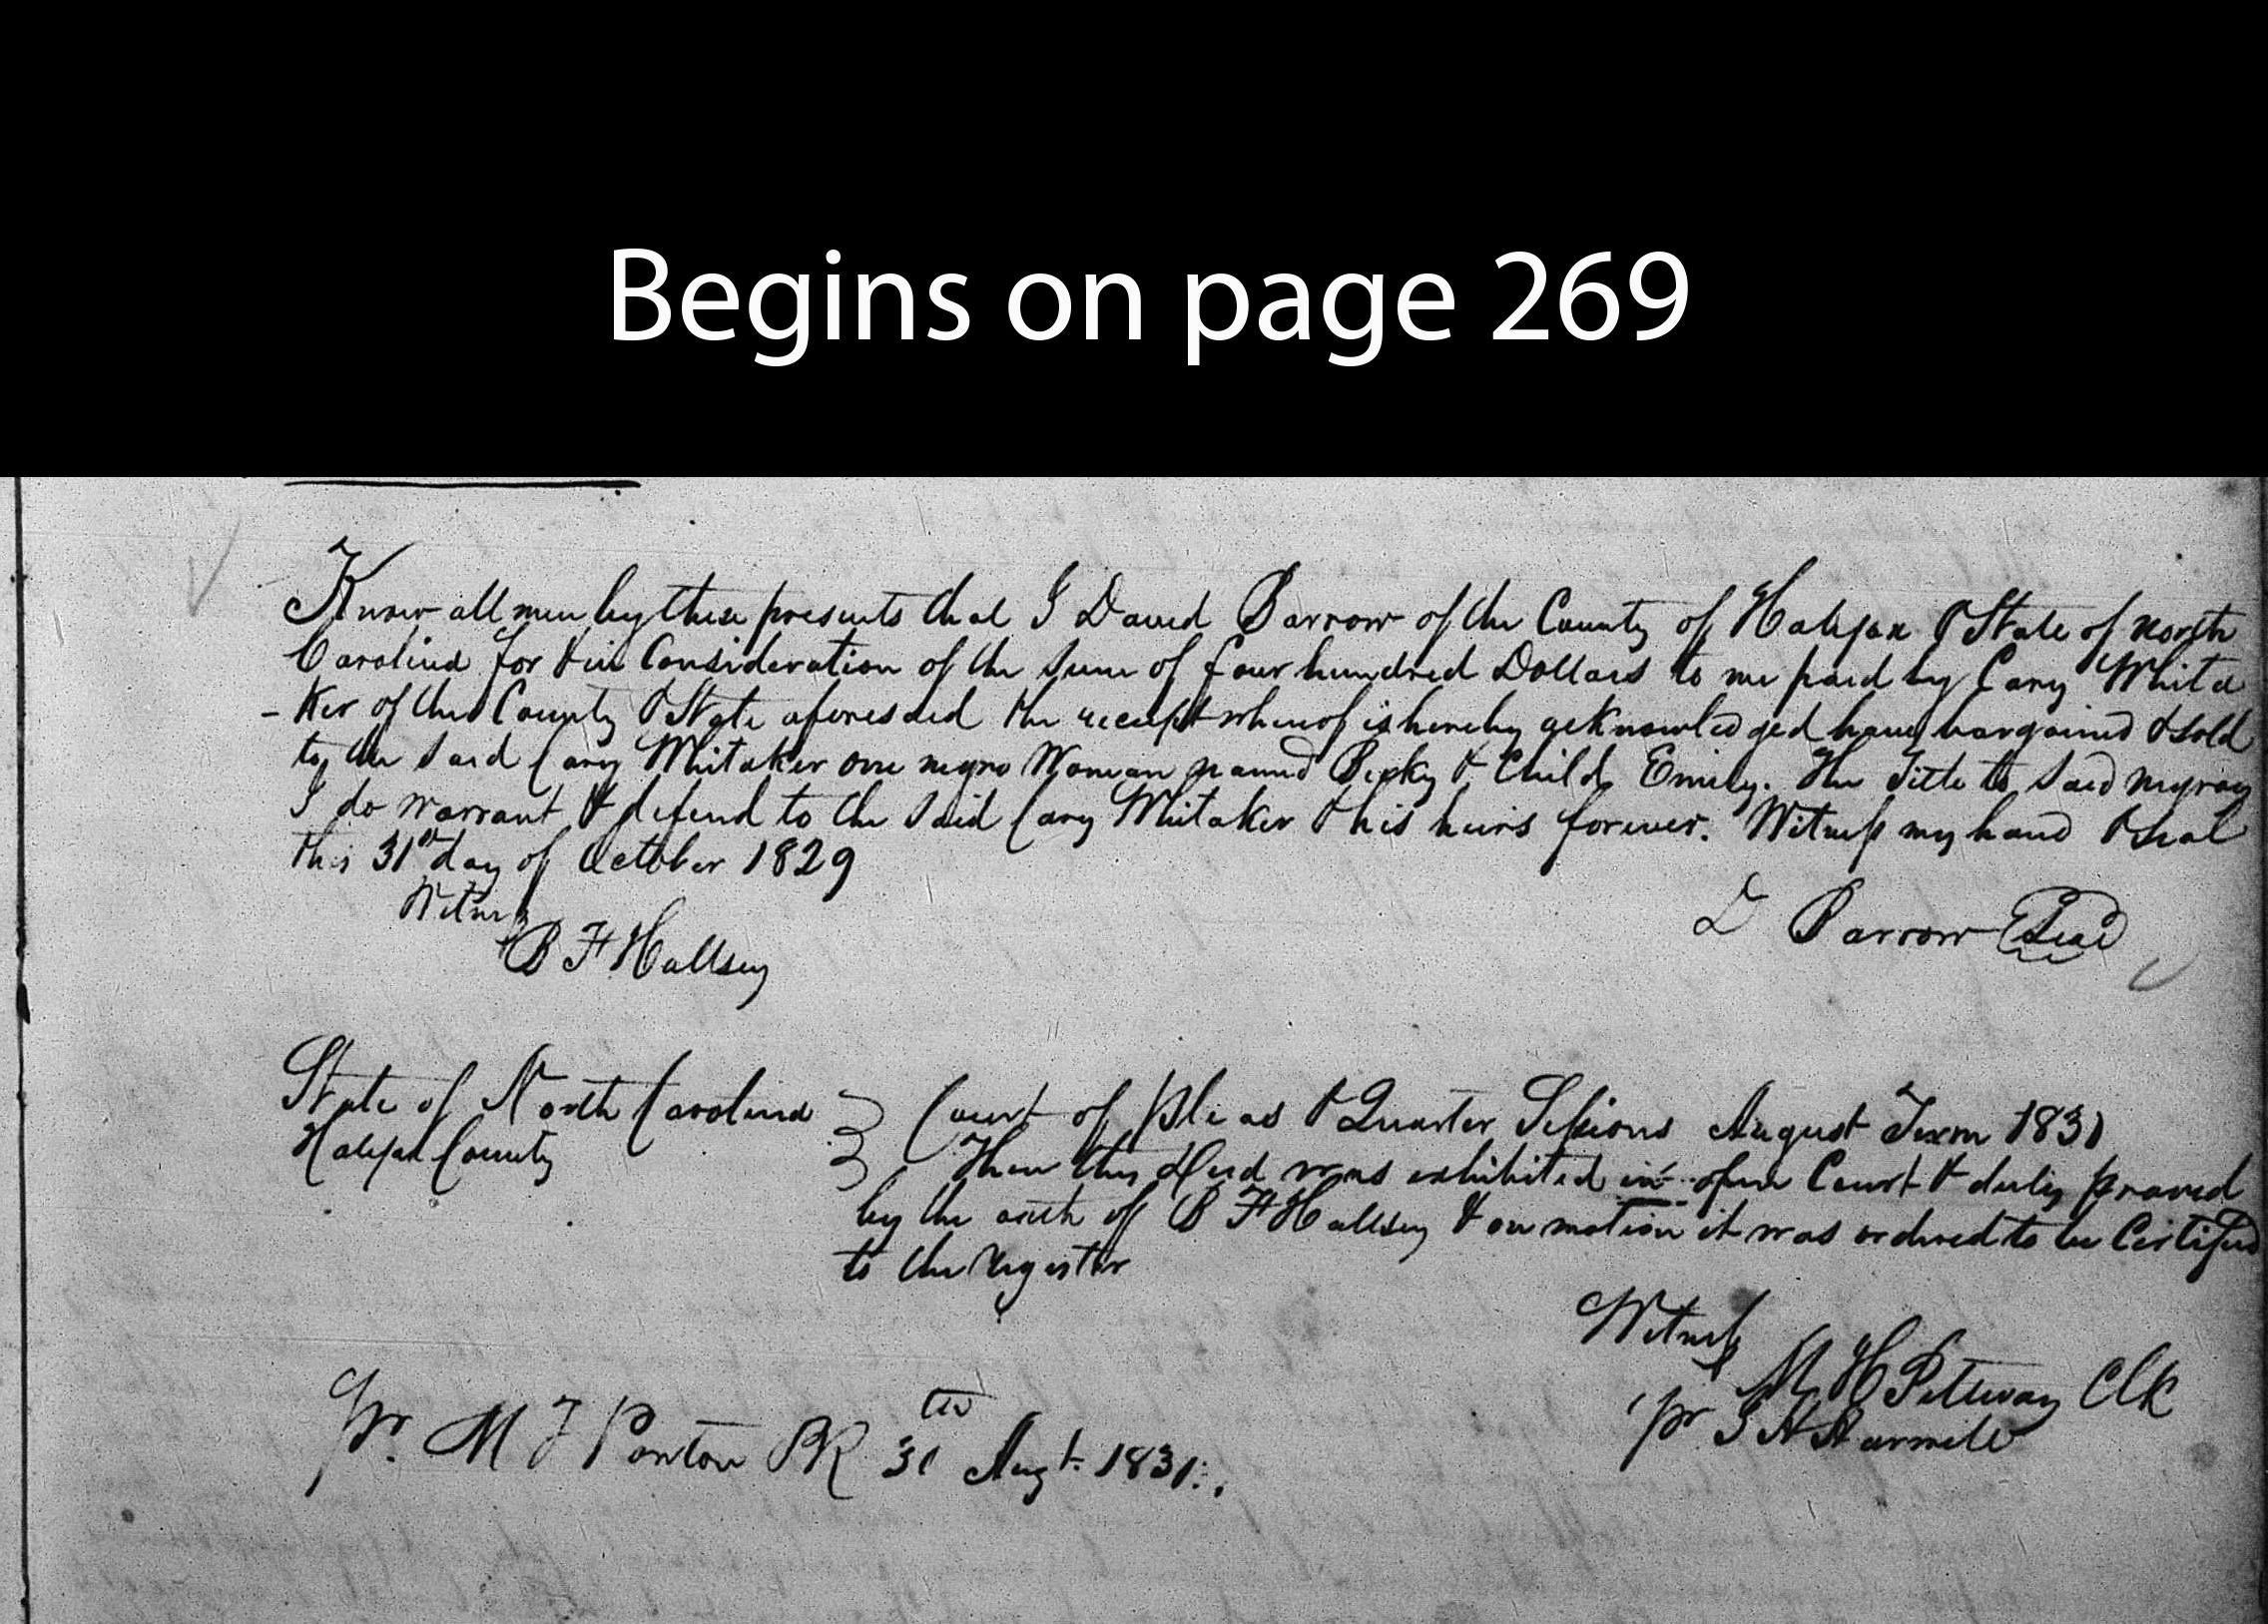 Begins on page 269
Know all men by these presents that I David Barrow of the County of Halifax & State of North
Carolina for & in Consideration of the sum of four hundred Dollars to me paid by Cary Whita
- Ker of the County & State aforesaid the receipt whereof is hereby acknowledged have bargained & sold
to the said Cary Whitaker one negro Woman named Becky & Child Emily. The Title to said negroes
I do warrant & defend to the said Cary Whitaker & his heirs forever. Witness my hand & seal
this 31st day of October 1829
Witness
D Barrow Seal
B F Hallsey
State of North Carolina Court of Pleas & Quarter Sessions August Term 1831
Halifax County Then this Deed was exhibited in open Court & duly proved
by the oath of B F Hallsey & on motion it was ordered to be Certified
to the register
Witness
M H Pettway Clk
pr M F Ponton PR 31 Augt. 1831